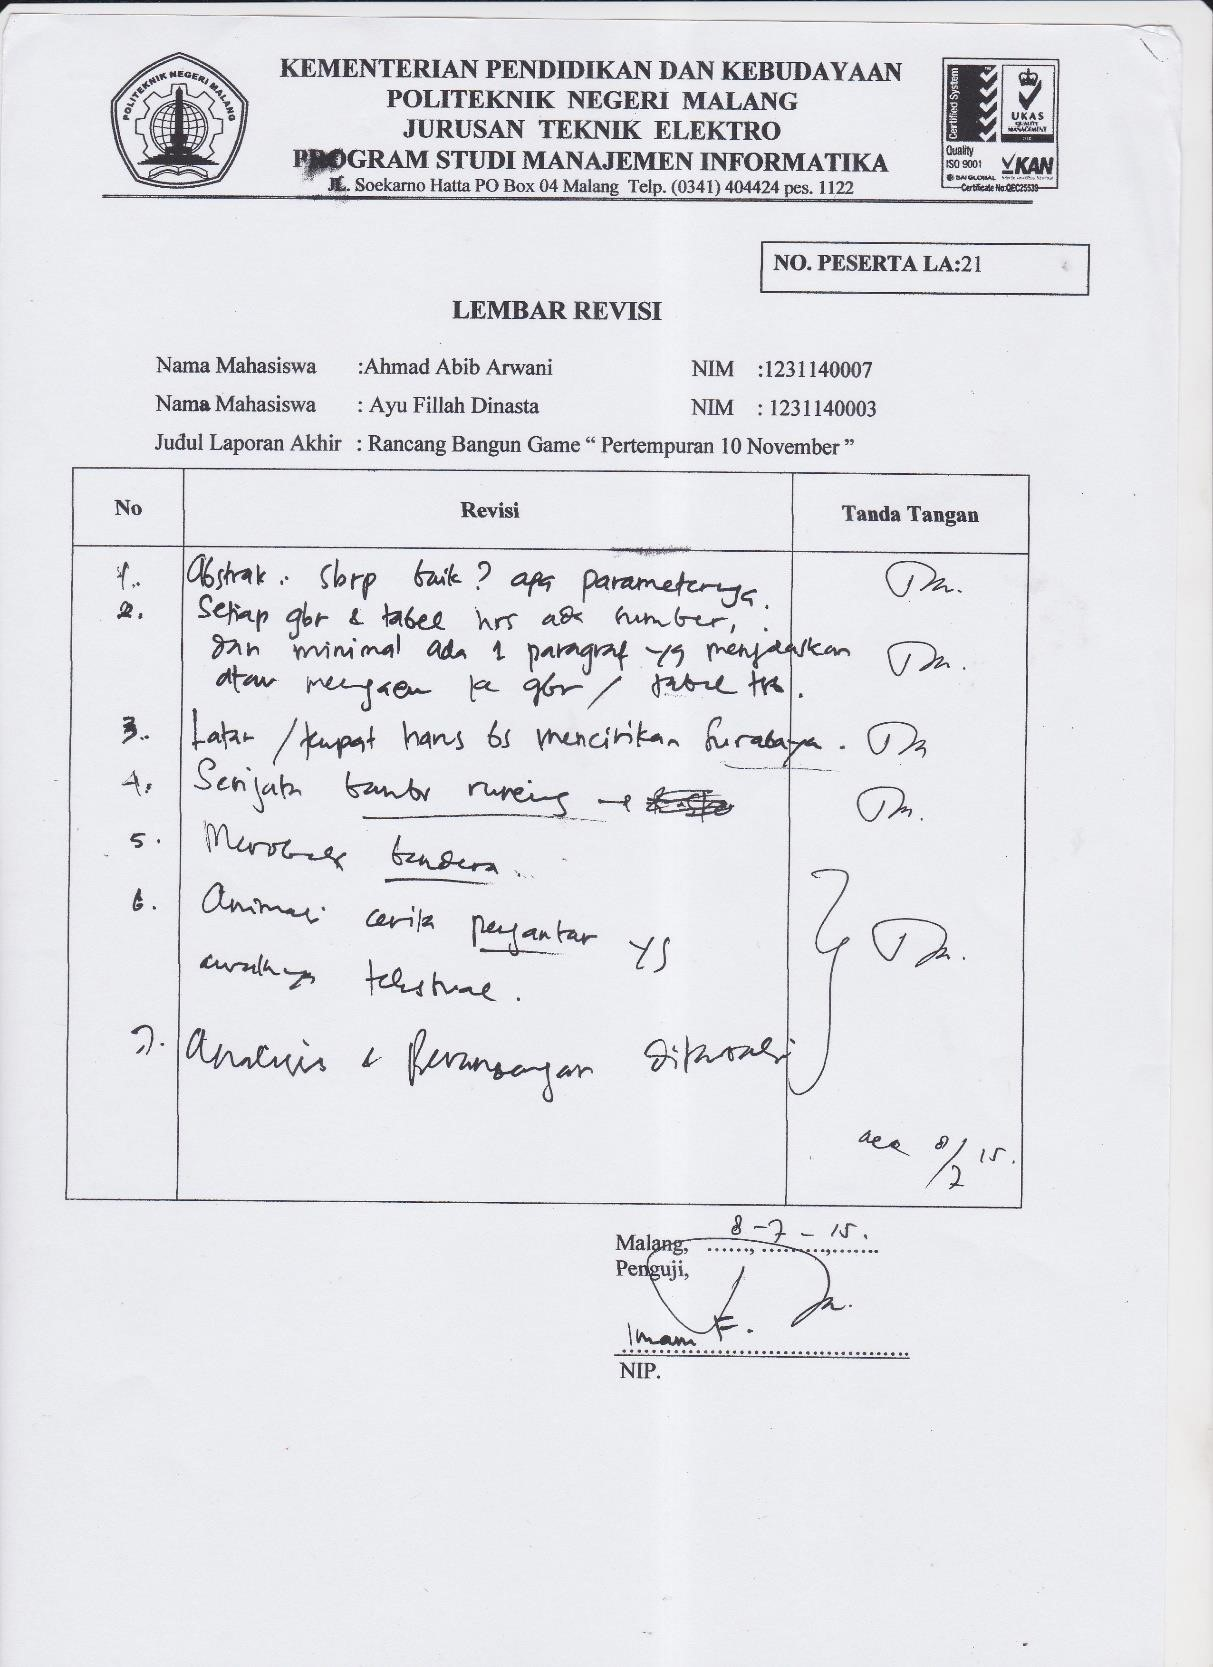 POLITEKNIK NEGERI MALANG
KEMENTERIAN PENDIDIKAN DAN KEBUDAYAAN
POLITEKNIK NEGERI MALANG
JURUSAN TEKNIK ELEKTRO
PROGRAM STUDI MANAJEMEN INFORMATIKA
JL. Soekarno Hatta PO Box 04 Malang Telp. (0341) 404424 pes. 1122
Certified System
UKAS
QUALITY
MANAGEMENT
Quality
ISO 9001
KAN
SAI GLOBAL
Certificate No:QEC25539
NO. PESERTA LA:21
LEMBAR REVISI
Nama Mahasiswa :Ahmad Abib Arwani NIM :1231140007
Nama Mahasiswa : Ayu Fillah Dinasta NIM : 1231140003
Judul Laporan Akhir : Rancang Bangun Game “ Pertempuran 10 November ”
No Revisi Tanda Tangan
1. Abstrak : sbrp baik? apa parameternya.
2. Setiap gbr & tabel hrs ada sumber,
dan minimal ada 1 paragraf yg menjelaskan
atau mengacu ke gbr / tabel tsb.
3. Latar / tempat harus bs mencirikan Surabaya.
4. Senjata bambu runcing →
5. Merobek bendera
6. Animasi cerita pengantar yg
awalnya tekstual.
7. Analisis & Perancangan
acc 8/7 15.
Malang, 8 - 7 - 15.
Penguji,
Imam F.
NIP.